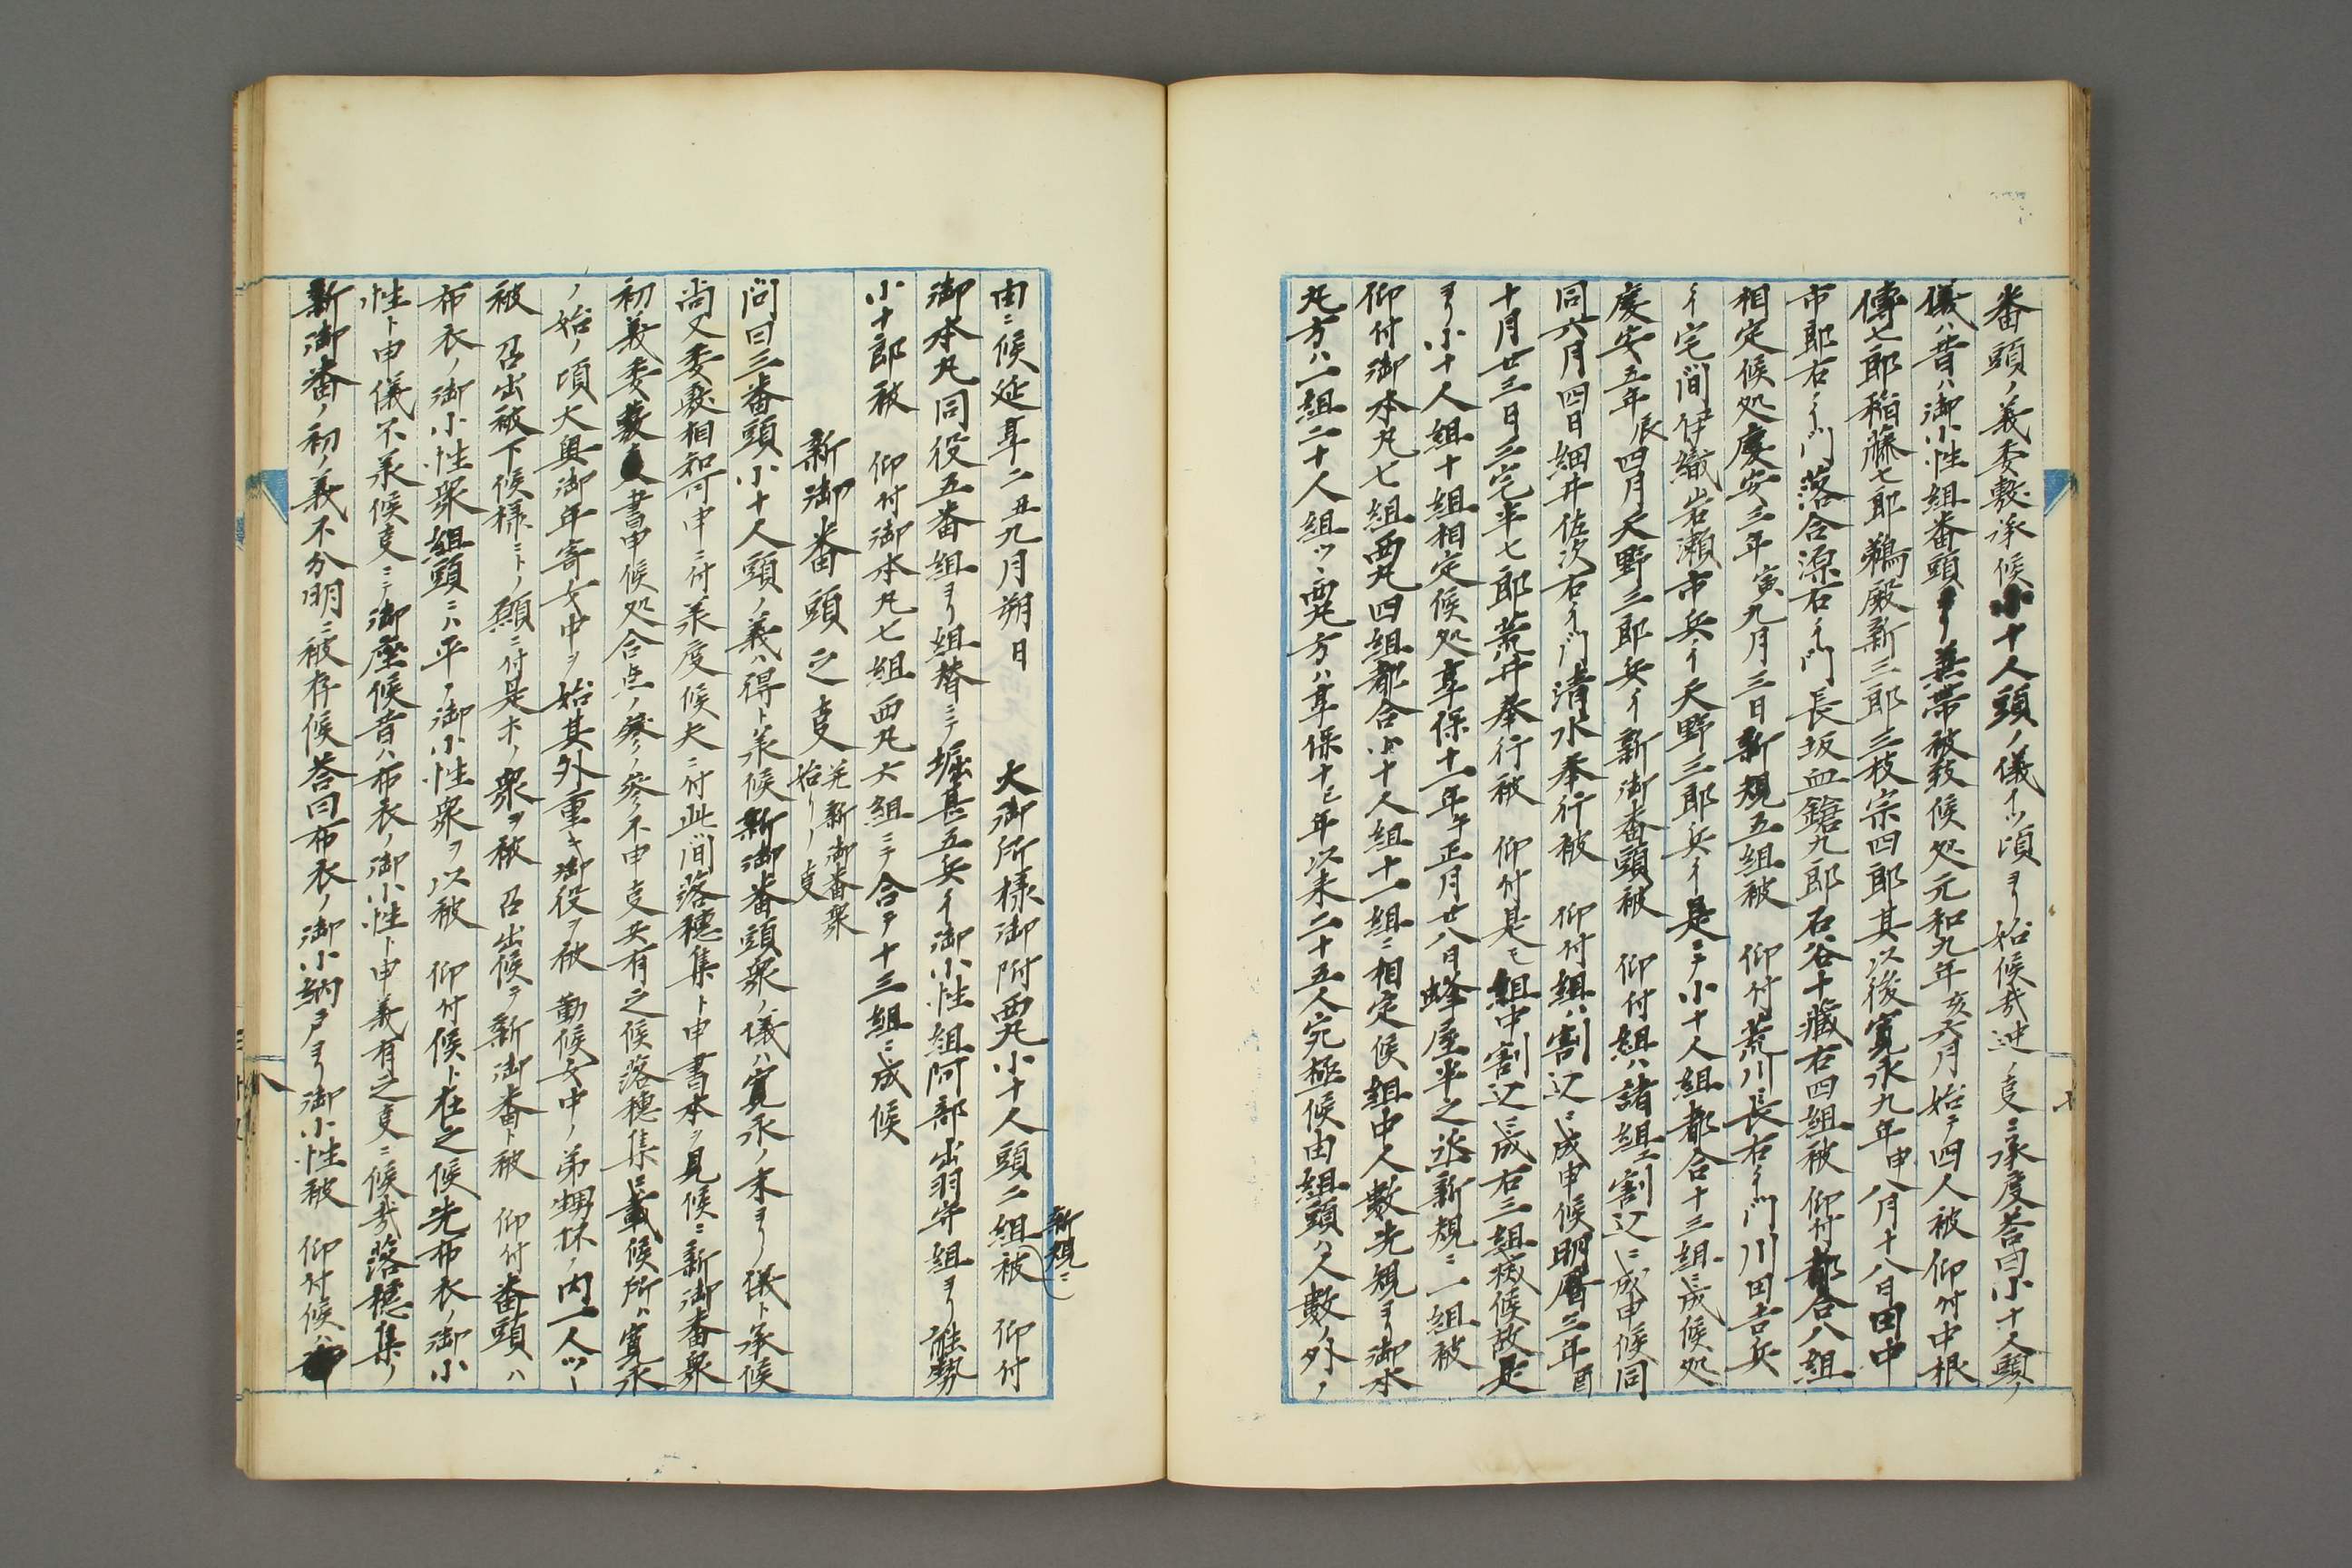 番頭ノ義委敷承候小十人頭ノ儀イツ頃ヨリ始候哉迚ノ叓ニ承度答曰小十人頭ノ
儀ハ昔ハ御小性組番頭ヨリ兼帯被致候処元和九年亥六月始テ四人被仰付中根
傳七郎稲藤七郎鵜殿新三郎三枝宗四郎其以後寛永九年申八月十八日田中
市郎右ヱ門落合源右ヱ門長坂血鎗九郎石谷十藏右四組被仰付都合八組
相定候処慶安三年寅九月三日新規五組被　仰付荒川長右ヱ門川田吉兵
ヱ三宅間伊織岩瀬市兵ヱ天野三郎兵ヱ是ニテ小十人組都合十三組ニ成候処
慶安五年辰四月天野三郎兵ヱ新御番頭被　仰付組ハ諸組ヱ割込ニ成申候同
同六月四日細井佐次右ヱ門清水奉行被　仰付組ハ割込ニ成申候明暦三年酉
十月廿三日三宅半七郎荒井奉行被　仰付是モ組中割込ニ成右三組減候故是
ヨリ小十人組十組相定候処享保十一年午正月廿八日蜂屋半之丞新規ニ一組被
仰付御本丸七組西丸四組都合小十人組十一組ニ相定候組中人數先規ヨリ御本
丸方ハ一組二十人組ツヽ西丸方ハ享保十巳年以来二十五人宛極候由組頭ハ人數ノ外ノ
由ニ候延享二丑九月朔日　大御所様御附西丸小十人頭二組被　仰付
新規ニ
御本丸同役五番組ヨリ組替ニテ堀甚五兵ヱ御小性組阿部出羽守組ヨリ能勢
小十郎被　仰付御本丸七組西丸六組ニテ合テ十三組ニ成候
新御番頭之叓　并新御番衆始リノ叓
問曰三番頭小十人頭ノ義ハ得ト承候新御番頭衆ノ儀ハ寛永ノ末ヨリノ儀ト承候
尚又委敷相知可申ニ付承度候夫ニ付此間落穂集ト申書本ヲ見候ニ新御番衆
初義委敷書申候処合点ノ參ノ參不申叓共有之候落穂集ニ載候所ハ寛永
ノ始ノ頃大奥御年寄女中ヲ始其外重キ御役ヲ被　勤候女中ノ弟甥抔ノ内一人ツヽ
被　召出被下候様ニトノ願ニ付是ホノ衆ヲ被　召出候テ新御番ト被　仰付番頭ハ
布衣ノ御小性衆組頭ニハ平ノ御小性衆ヲ以被　仰付候ト在之候先布衣ノ御小
性ト申儀不承候叓ニテ御座候昔ハ布衣ノ御小性ト申義有之叓ニ候哉落穂集ノ
新御番ノ初ノ義不分明ニ被存候答曰布衣ノ御小納戸ヨリ御小性被　仰付候ハ